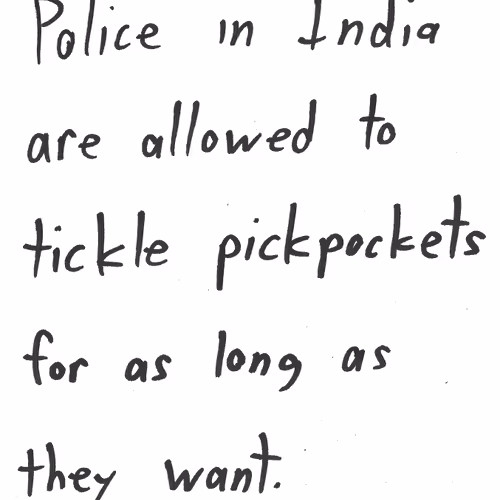 Police in India
are allowed to
tickle pickpockets
for as long as
they want.